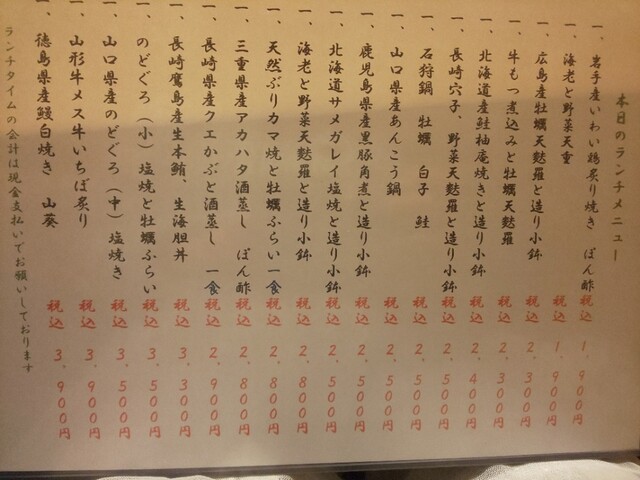 本日のランチメニュー
一、岩手産いわい鶏炙り焼き ぽん酢 税込 1、900円
一、海老と野菜天重 税込 1、900円
一、広島産牡蠣天麩羅と造り小鉢 税込 2、300円
一、牛もつ煮込みと牡蠣天麩羅 税込 2、300円
一、北海道産鮭柚庵焼きと造り小鉢 税込 2、400円
一、長崎穴子、野菜天麩羅と造り小鉢 税込 2、500円
一、石狩鍋 牡蠣 白子 鮭 税込 2、500円
一、山口県産あんこう鍋 税込 2、500円
一、鹿児島県産黒豚角煮と造り小鉢 税込 2、500円
一、北海道サメガレイ塩焼と造り小鉢 税込 2、500円
一、海老と野菜天麩羅と造り小鉢 税込 2、800円
一、天然ぶりカマ焼と牡蠣ふらい 一食 税込 2、800円
一、三重県産アカハタ酒蒸し ぽん酢 税込 2、800円
一、長崎県産クエかぶと酒蒸し 一食 税込 2、900円
一、長崎鷹島産生本鮪、生海胆丼 税込 3、300円
一、のどぐろ(小)塩焼と牡蠣ふらい 税込 3、500円
一、山口県産のどぐろ(中)塩焼き 税込 3、500円
一、山形牛メス牛いちぼ炙り 税込 3、900円
一、徳島県産鰻白焼き 山葵 税込 3、900円
ランチタイムの会計は現金支払いでお願いしております